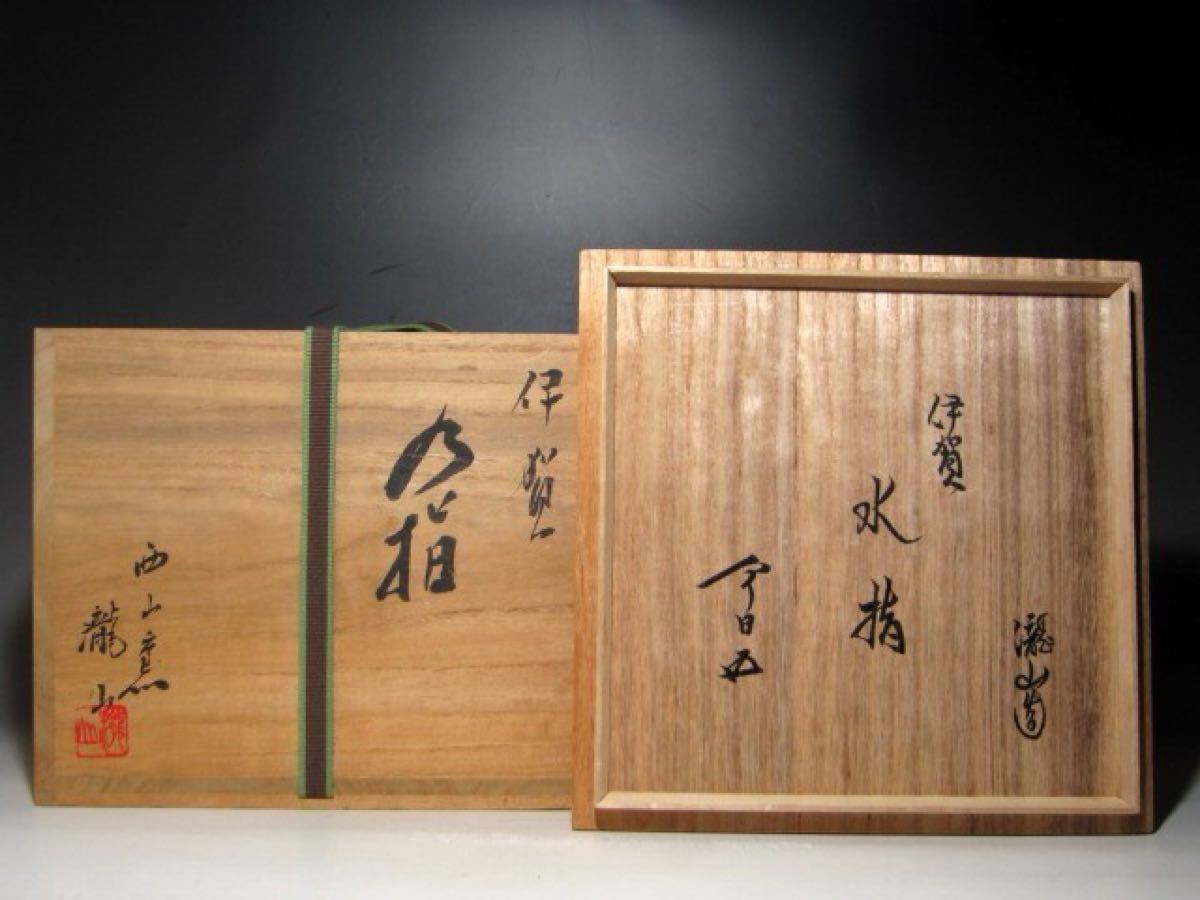 伊賀
水指
西山窯
瀧山
瀧山造
伊賀
水指
今日